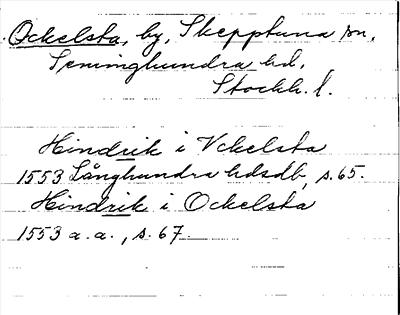 Ockelsta, by, Skepptuna sn,
Semminghundra hd,
Stockh. l.
Hindrik i Vckelsta
1553 Långhundra hdsdb, s. 65.
Hindrik i Ockelsta
1553 a. a., s. 67.